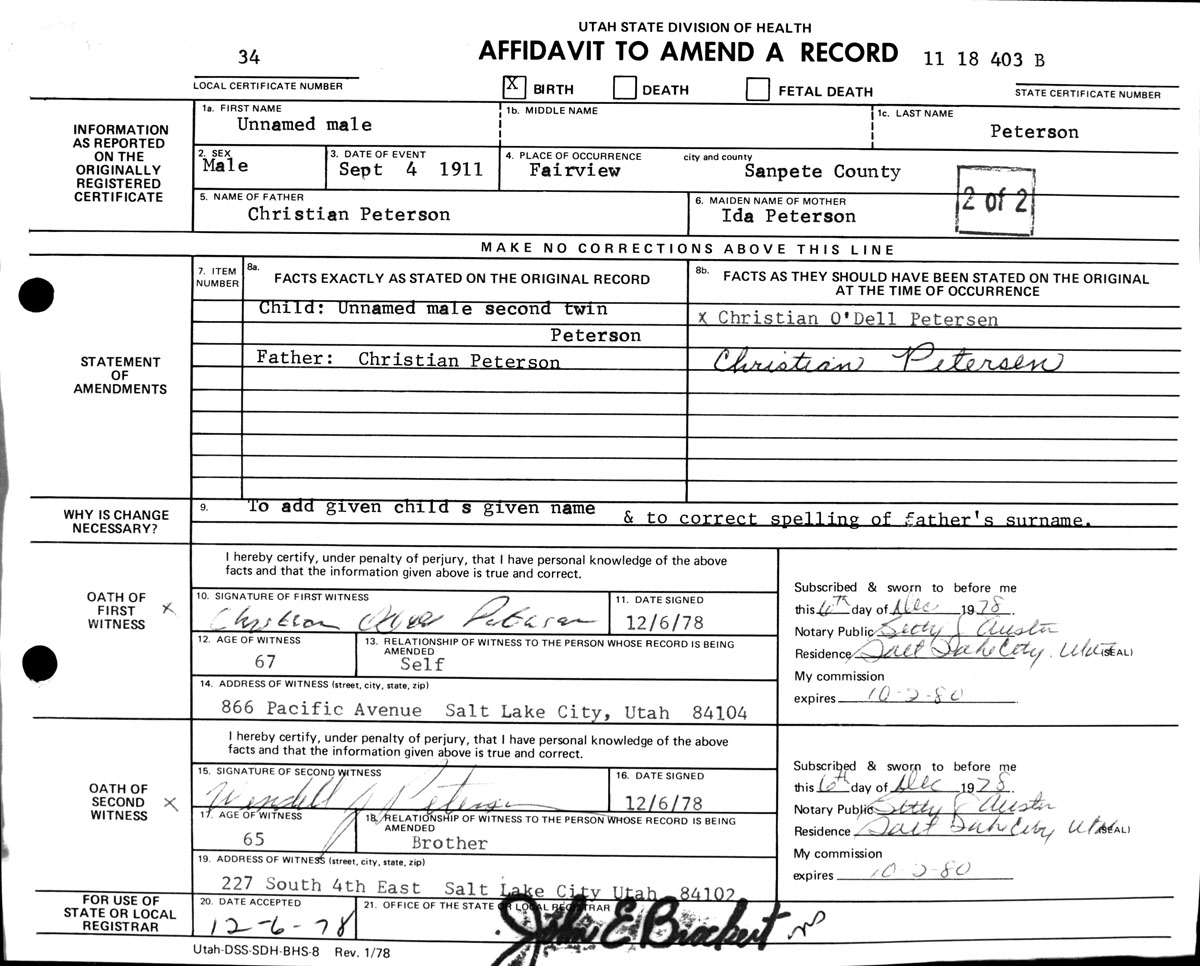 UTAH STATE DIVISION OF HEALTH
34 AFFIDAVIT TO AMEND A RECORD 11 18 403 B
LOCAL CERTIFICATE NUMBER X BIRTH DEATH FETAL DEATH STATE CERTIFICATE NUMBER
INFORMATION AS REPORTED ON THE ORIGINALLY REGISTERED CERTIFICATE
1a. FIRST NAME 1b. MIDDLE NAME 1c. LAST NAME
Unnamed male Peterson
2. SEX 3. DATE OF EVENT 4. PLACE OF OCCURRENCE city and county
Male Sept 4 1911 Fairview Sanpete County
2 of 2
5. NAME OF FATHER 6. MAIDEN NAME OF MOTHER
Christian Peterson Ida Peterson
MAKE NO CORRECTIONS ABOVE THIS LINE
STATEMENT OF AMENDMENTS
7. ITEM NUMBER 8a. FACTS EXACTLY AS STATED ON THE ORIGINAL RECORD 8b. FACTS AS THEY SHOULD HAVE BEEN STATED ON THE ORIGINAL AT THE TIME OF OCCURRENCE
Child: Unnamed male second twin X Christian O'Dell Petersen
Peterson
Father: Christian Peterson Christian Petersen
WHY IS CHANGE NECESSARY?
9. To add given child s given name & to correct spelling of father's surname.
OATH OF FIRST WITNESS X
I hereby certify, under penalty of perjury, that I have personal knowledge of the above
facts and that the information given above is true and correct.
10. SIGNATURE OF FIRST WITNESS 11. DATE SIGNED
Christian Petersen 12/6/78
12. AGE OF WITNESS 13. RELATIONSHIP OF WITNESS TO THE PERSON WHOSE RECORD IS BEING AMENDED
67 Self
14. ADDRESS OF WITNESS (street, city, state, zip)
866 Pacific Avenue Salt Lake City, Utah 84104
Subscribed & sworn to before me
this 6th day of Dec 1978.
Notary Public Betty J Auster
Residence Salt Lake City, Utah (SEAL)
My commission
expires 10-2-80
OATH OF SECOND WITNESS X
I hereby certify, under penalty of perjury, that I have personal knowledge of the above
facts and that the information given above is true and correct.
15. SIGNATURE OF SECOND WITNESS 16. DATE SIGNED
Wendell J Petersen 12/6/78
17. AGE OF WITNESS 18. RELATIONSHIP OF WITNESS TO THE PERSON WHOSE RECORD IS BEING AMENDED
65 Brother
19. ADDRESS OF WITNESS (street, city, state, zip)
227 South 4th East Salt Lake City Utah 84102
Subscribed & sworn to before me
this 6th day of Dec 1978
Notary Public Betty J Auster
Residence Salt Lake City Utah (SEAL)
My commission
expires 10-2-80
FOR USE OF STATE OR LOCAL REGISTRAR
20. DATE ACCEPTED 21. OFFICE OF THE STATE OR LOCAL REGISTRAR
12-6-78 John E Brockert
Utah-DSS-SDH-BHS-8 Rev. 1/78